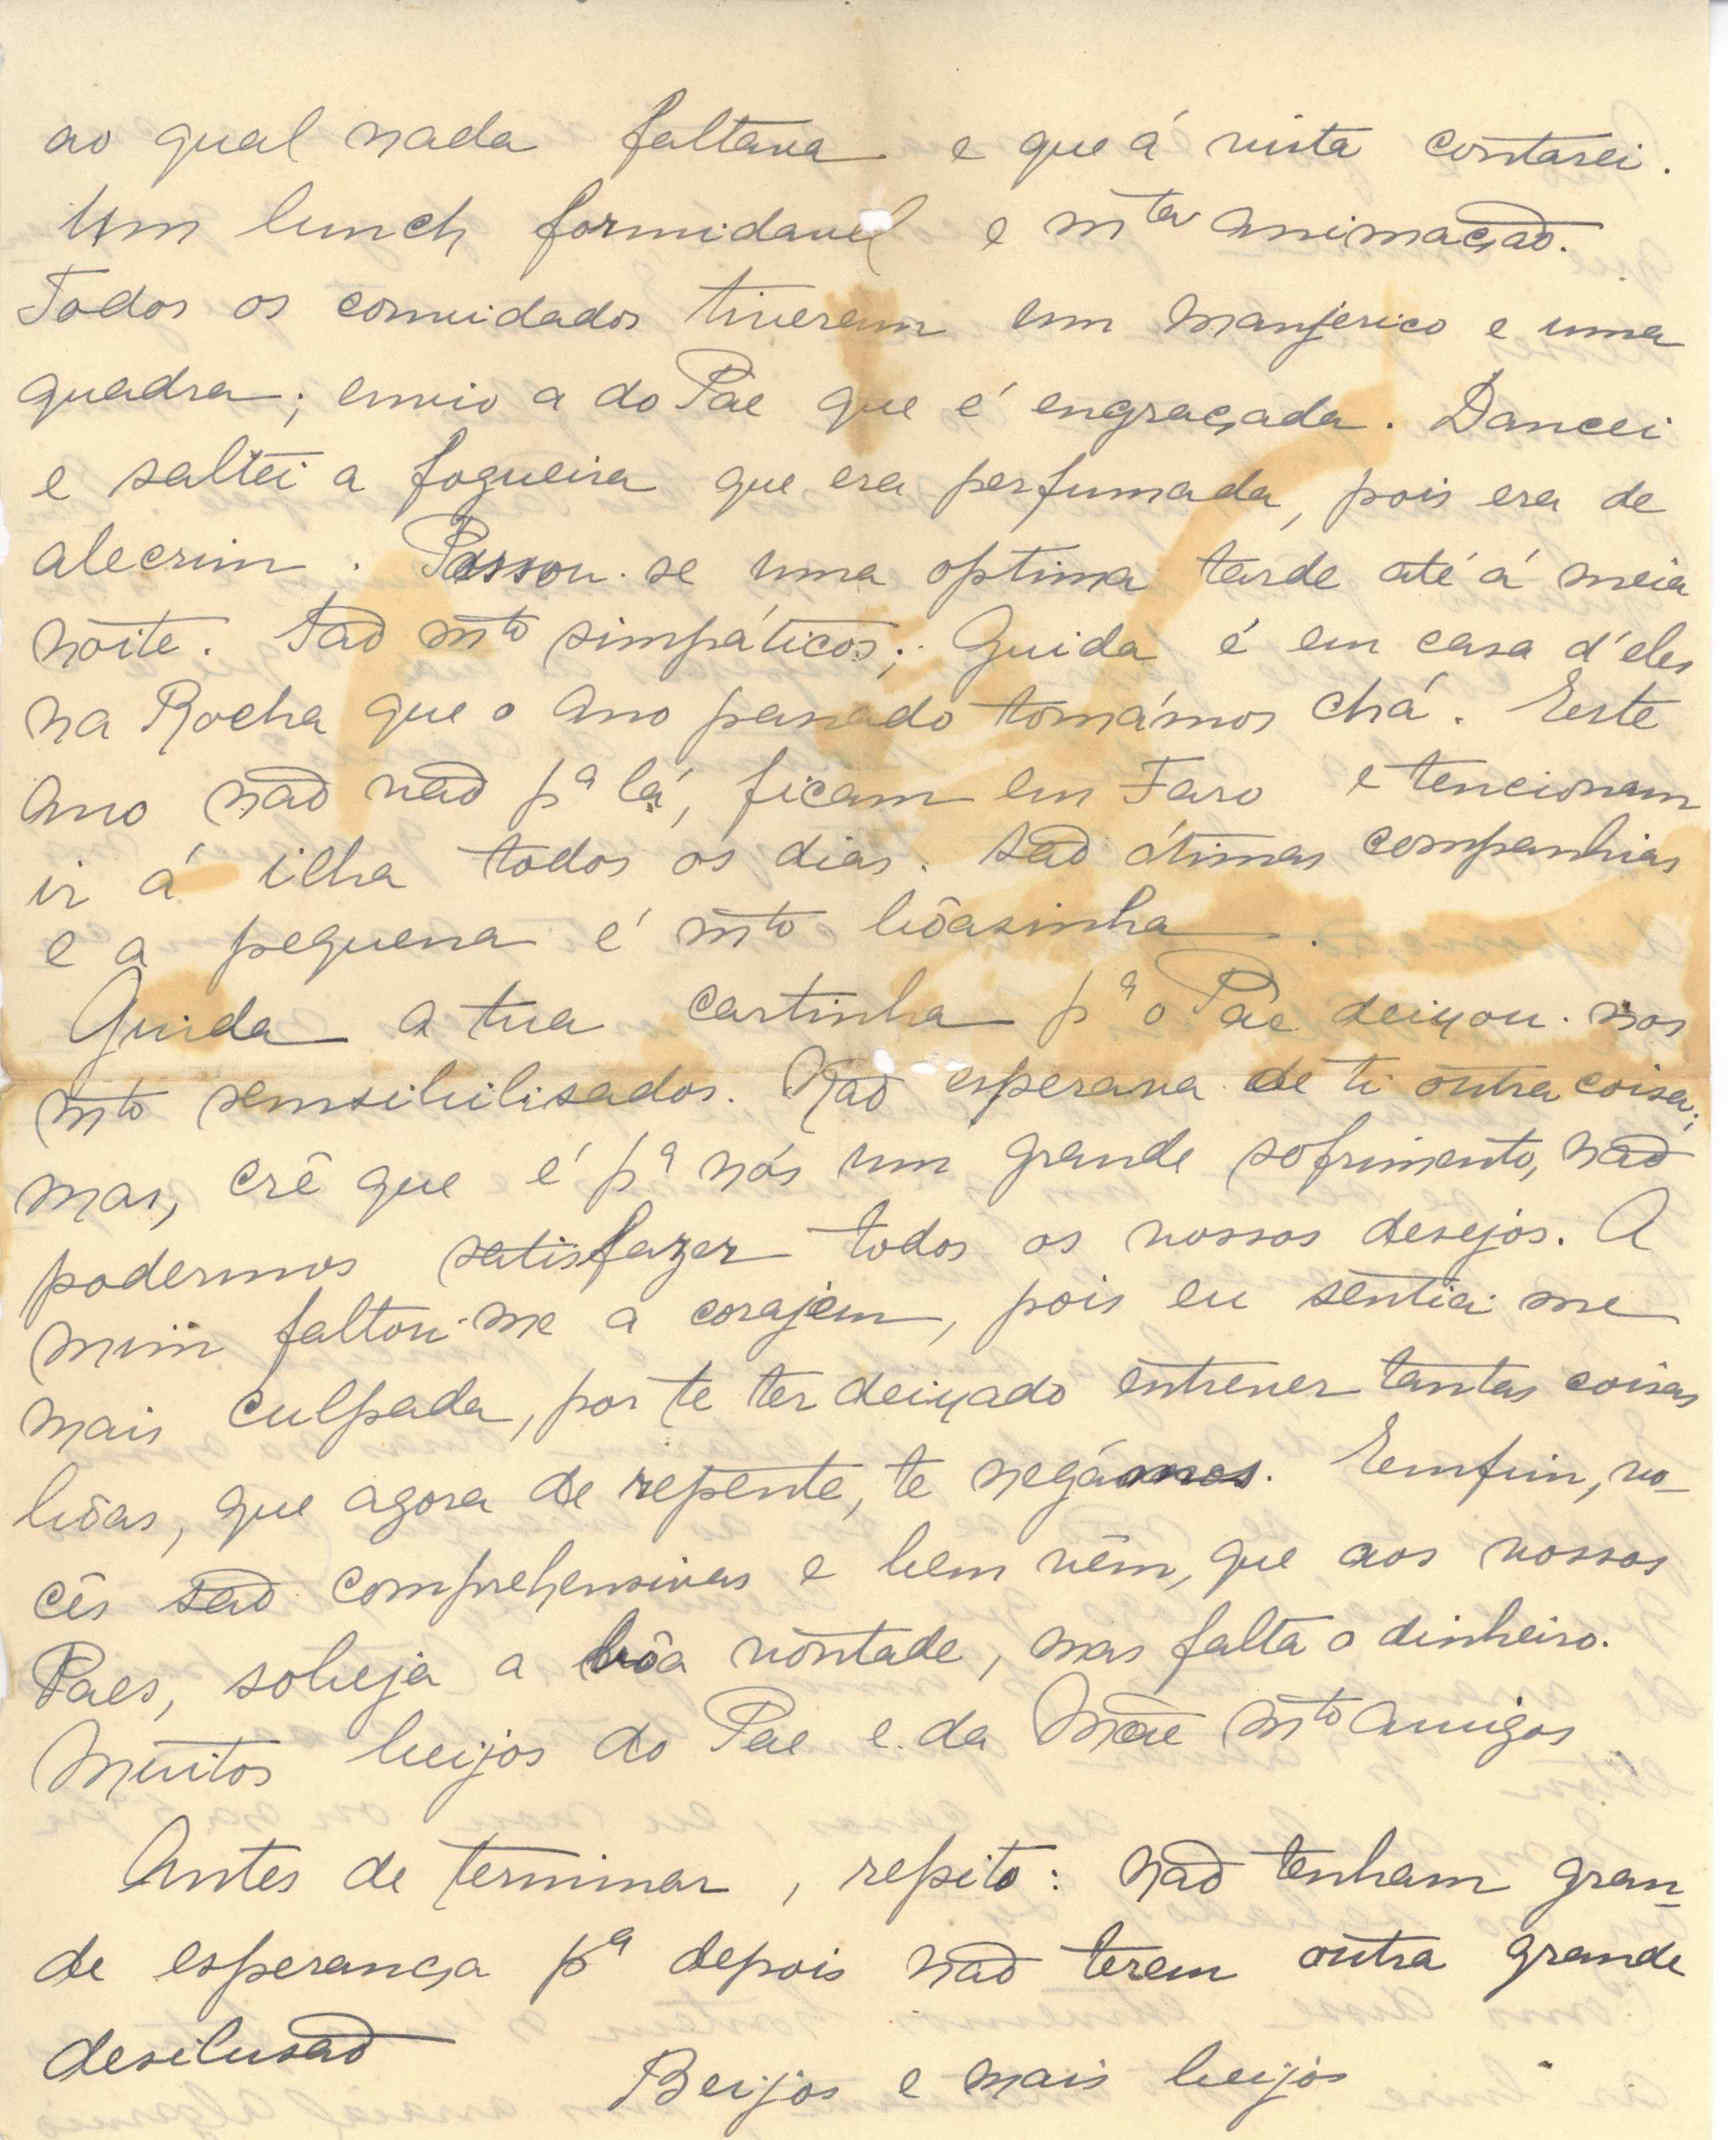 ao qual nada faltava e que á vista contarei.
Um lunch formidavel e mta animação.
Todos os convidados tiveram um manjerico e uma
quadra; envio a do Pae que é engraçada. Dancei
e saltei a fogueira que era perfumada, pois era de
alecrim. Passou-se uma optima tarde até á meia
noite. São mto simpáticos; Guida é em casa d'eles
na Rocha que o ano passado tomámos chá. Este
ano não vão pa lá, ficam em Faro e tencionam
ir á ilha todos os dias. São ótimas companhias
e a pequena é mto bôasinha.
Guida a tua cartinha pa o Pae deixou-nos
mto sensibilisados. Não esperava de ti outra coisa;
mas, crê que é pa nós um grande sofrimento, não
podermos satisfazer todos os vossos desejos. A
mim faltou-me a corajem, pois eu sentia-me
mais culpada, por te ter deixado entrever tantas coisas
bôas, que agora de repente, te negámos. Emfim, vo-
cês são comprehensivas e bem vêm, que aos vossos
Paes, sobeja a bôa vontade, mas falta o dinheiro.
Muitos beijos do Pae e da Mãe mto amigos
Antes de terminar, repito: não tenham gran-
de esperança pa depois não terem outra grande
desilusão
Beijos e mais beijos